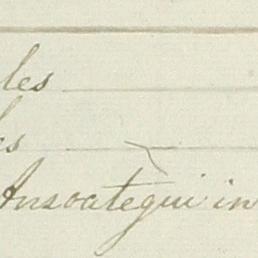 les
es
Anzoategui in